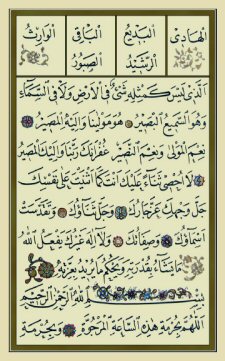 الهادي البديع الباقي الوارث
الرشيد الصبور
الذي ليس كمثله شيء في الأرض ولا في السماء
وهو السميع البصير هو مولينا وإليه المصير
نعم المولى ونعم النصير غفرانك ربنا وإليك المصير
لا أحصي ثناء عليك أنت كما أثنيت على نفسك
جل وجهك عز جارك وجل ثناؤك وتقدست
أسماؤك وصفاتك ولا إله غيرك يفعل الله
ما يشاء بقدرته ويحكم ما يريد بعزته
بسم الله الرحمن الرحيم
اللهم بحرمة هذه الساعة المرجوة وبحرمة